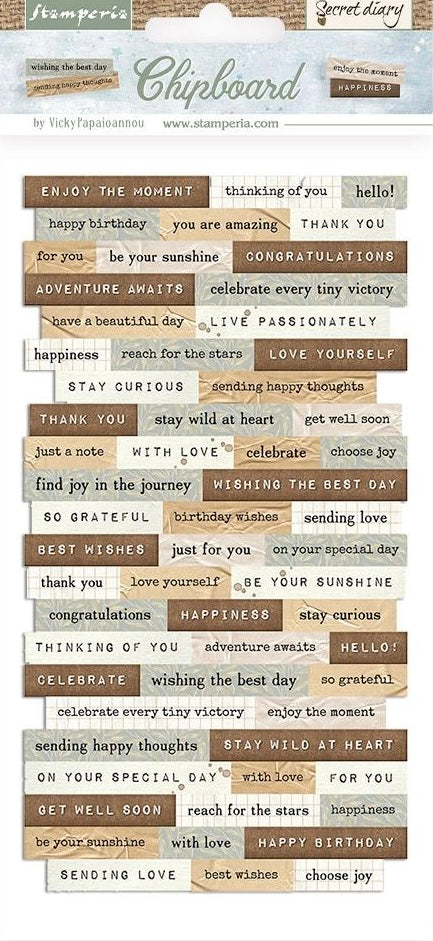 Stamperia
Secret diary
wishing the best day
sending happy thoughts
Chipboard
enjoy the moment
HAPPINESS
by VickyPapaioannou www.stamperia.com
ENJOY THE MOMENT thinking of you hello!
happy birthday you are amazing THANK YOU
for you be your sunshine CONGRATULATIONS
ADVENTURE AWAITS celebrate every tiny victory
have a beautiful day LIVE PASSIONATELY
happiness reach for the stars LOVE YOURSELF
STAY CURIOUS sending happy thoughts
THANK YOU stay wild at heart get well soon
just a note WITH LOVE celebrate choose joy
find joy in the journey WISHING THE BEST DAY
SO GRATEFUL birthday wishes sending love
BEST WISHES just for you on your special day
thank you love yourself BE YOUR SUNSHINE
congratulations HAPPINESS stay curious
THINKING OF YOU adventure awaits HELLO!
CELEBRATE wishing the best day so grateful
celebrate every tiny victory enjoy the moment
sending happy thoughts STAY WILD AT HEART
ON YOUR SPECIAL DAY with love FOR YOU
GET WELL SOON reach for the stars happiness
be your sunshine with love HAPPY BIRTHDAY
SENDING LOVE best wishes choose joy